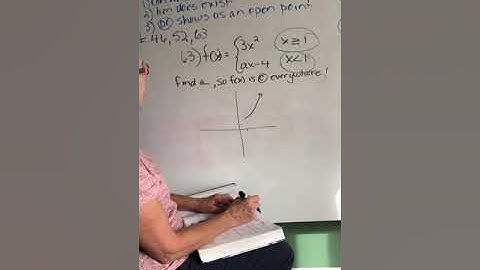 2) lim does exist
3) DC shows as an open point
= 46, 52, 63
63) f(x) = { 3x² x ≥ 1
ax-4 x < 1
find a, so f(x) is C everywhere!